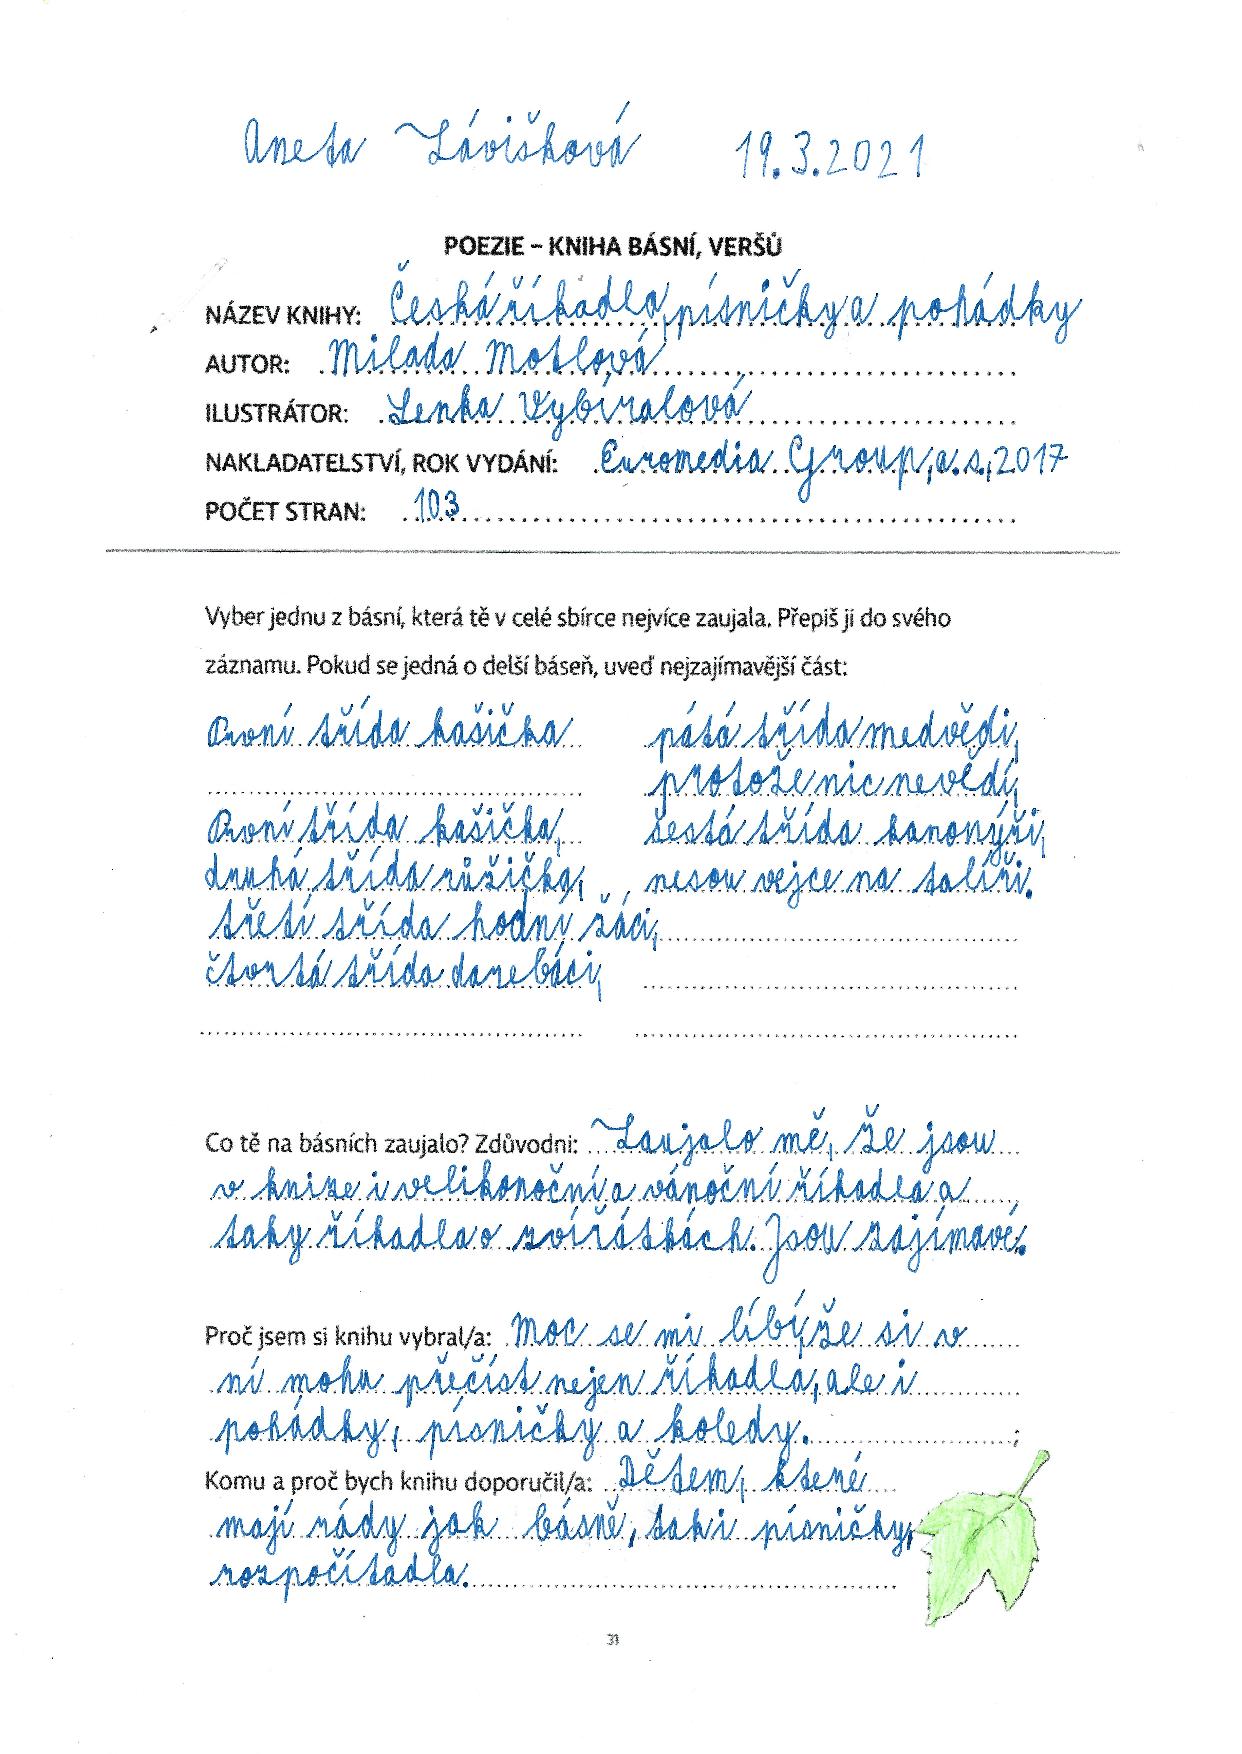 Aneta Závišková 19.3.2021
POEZIE – KNIHA BÁSNÍ, VERŠŮ
NÁZEV KNIHY: Česká říkadla, písničky a pohádky
AUTOR: Milada Motlová
ILUSTRÁTOR: Lenka Vybíralová
NAKLADATELSTVÍ, ROK VYDÁNÍ: Euromedia Group, a.s., 2017
POČET STRAN: 103
Vyber jednu z básní, která tě v celé sbírce nejvíce zaujala. Přepiš ji do svého
záznamu. Pokud se jedná o delší báseň, uveď nejzajímavější část:
První třída kašička
První třída kašička,
druhá třída růžička,
třetí třída hodní žáci,
čtvrtá třída darebáci,
pátá třída medvědi,
protože nic nevědí,
šestá třída kanonýři,
nesou vejce na talíři.
Co tě na básních zaujalo? Zdůvodni: Zaujalo mě, že jsou
v knize i velikonoční a vánoční říkadla a
taky říkadla o zvířátkách. Jsou zajímavé.
Proč jsem si knihu vybral/a: Moc se mi líbí, že si v
ní mohu přečíst nejen říkadla, ale i
pohádky, písničky a koledy.
Komu a proč bych knihu doporučil/a: Dětem, které
mají rády jak básně, tak i písničky,
rozpočítadla.
31